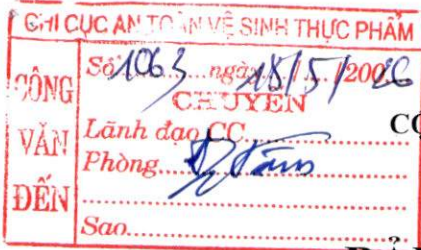 CHI CỤC AN TOÀN VỆ SINH THỰC PHẨM
CÔNG VĂN ĐẾN
Số 1063 ngày 18/5/2026
CHUYỂN
Lãnh đạo CC
Phòng
Sao